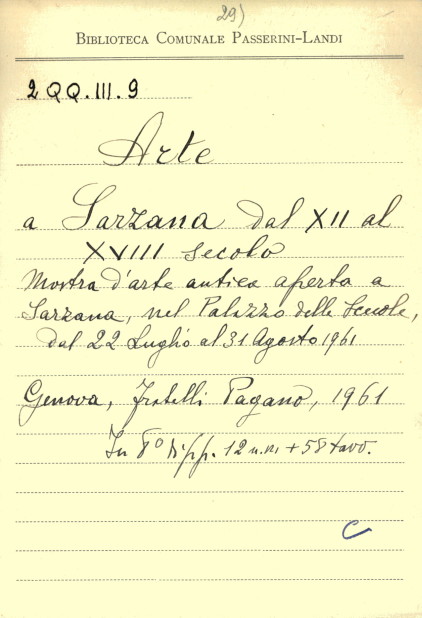 29)
BIBLIOTECA COMUNALE PASSERINI-LANDI
2 QQ.III.9
Arte
a Sarzana dal XII al
XVIII secolo
Mostra d'arte antica aperta a
Sarzana, nel Palazzo delle Scuole,
dal 22 Luglio al 31 Agosto 1961
Genova, Fratelli Pagano, 1961
In 8° di pp. 12 n.n. + 58 tavv.
C